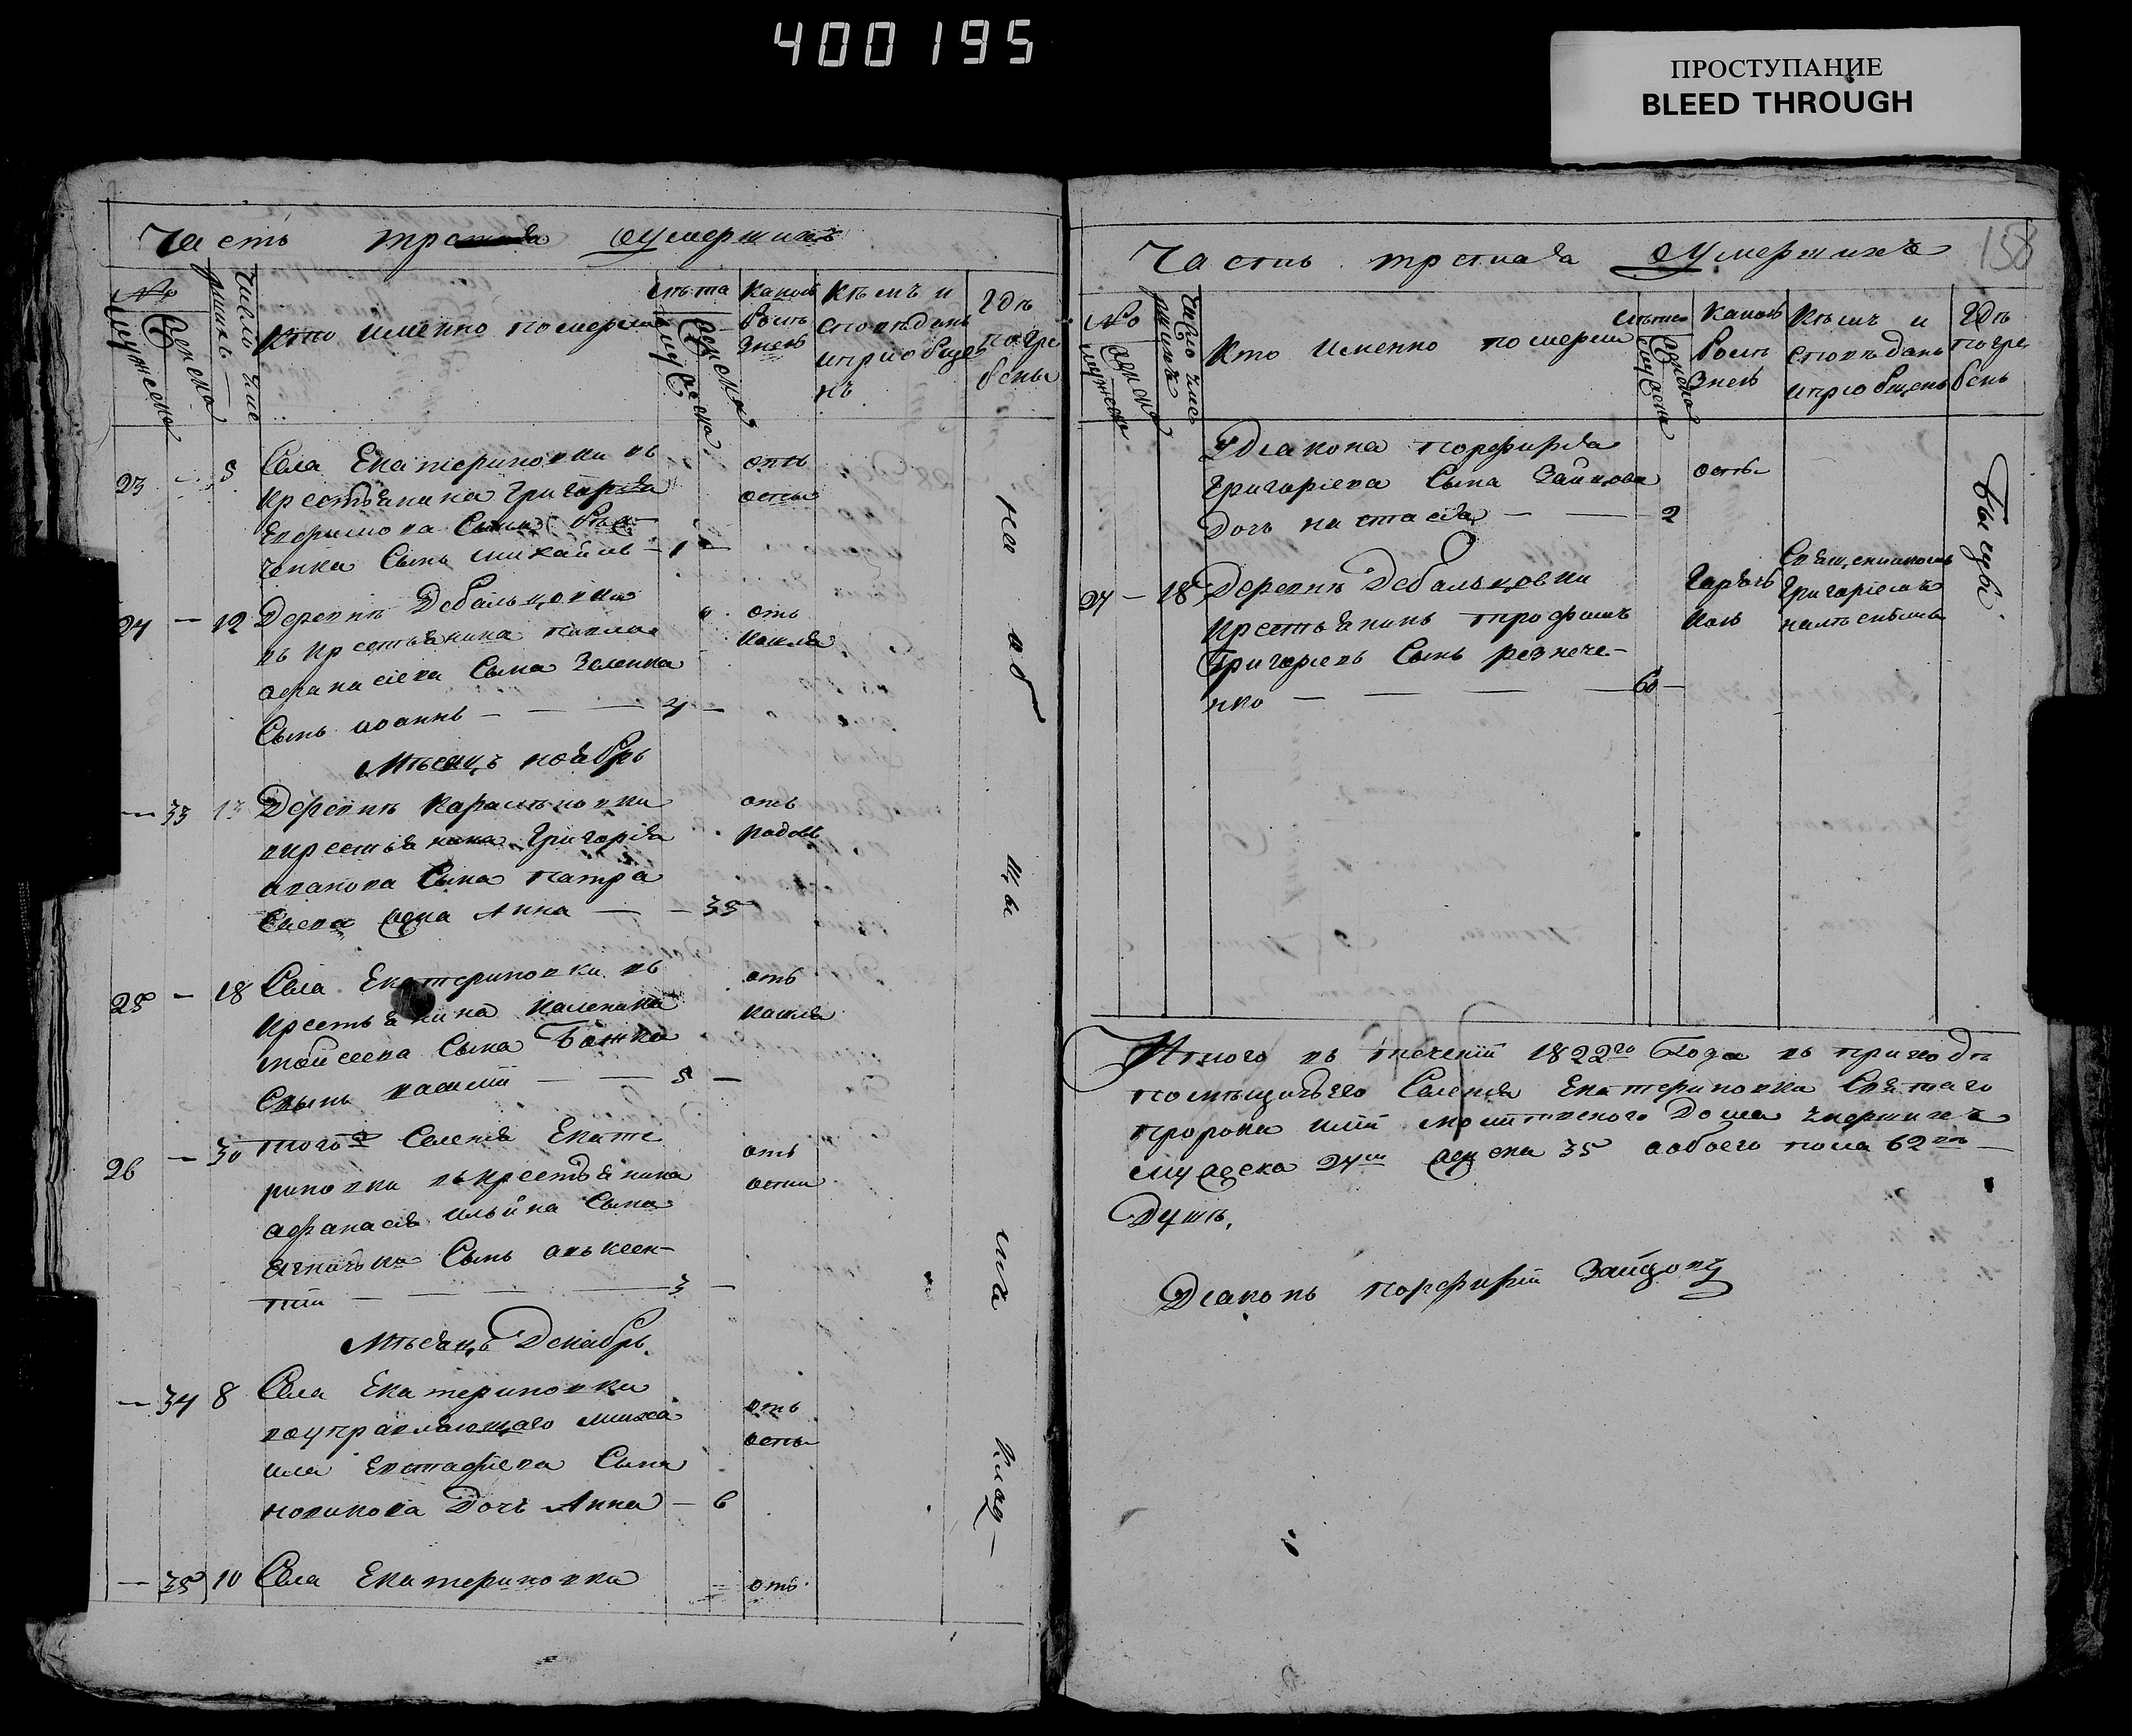 400195
ПРОСТУПАНИЕ
BLEED THROUGH
Часть третая оумершихъ
№
мужеска
женска
число уме
ршихъ
Кто именно померли
лѣта
мужеска
женска
Какою
болѣ
знею
Кѣмъ и
сповѣданы
и приобще
нъ
Гдѣ
погре
бены
23 — 5 Села Екатериновки въ
крестьянина Григорія
Ефимова Сына
Сынъ михаилъ — 1 —
отъ
оспы
24 — 12 Деревнѣ Дебальцовки
въ крестьянина павла
афанасіева Сына Зеленка
Сынъ иоаннъ — 4 —
отъ
кашля
Мѣсяцъ ноябрь
— 33 13 Деревнѣ
вкрестьянина Григорія
иванова Сына
жена Анна — 35
отъ
родовъ
25 — 18 Села Екатериновки въ
крестьянина каленика
мойсеева Сына Божка
Сынъ василій — 5 —
отъ
кашля
26 — 30 того Селенія Екате
риновки въ крестьянина
афанасія ильина Сына
Сынъ
3 —
отъ
оспы
Мѣсяцъ Декабрь.
— 34 8 Села Екатериновки
воуправляющаго михаи
ила Евстафіева Сына
новикова Дочь Анна — 6
отъ
оспы
— 35 10 Села Екатериновки
отъ
на об
ще
мъ
клад—
158
Часть третиая оумершихъ
№
мужеска
женска
число уме
ршихъ
Кто именно померли
лѣта
мужеска
женска
Какою
болѣ
знею
Кѣмъ и
сповѣданы
и приобщены
Гдѣ
погре
бены
Удіакона порфирія
Григоріева Сына Зайцова
Дочь настасія — 2
оспы
24 — 18 Деревнѣ Дебальцовки
крестьянинъ трофимъ
Григоріевъ Сынъ резнече—
нко — 60 —
Горяч
кою
Священникомъ
Григоріемъ
Итого въ теченіи 1822го Года въ приходѣ
помѣщичьего Селенія Екатериновки Святаго
пророка иліи молитвеного Дома умершихъ
мужеска 27ми женска 35 аобоего пола 62вѣ —
Душѣ.
Діаконъ порфирій Зайцовъ